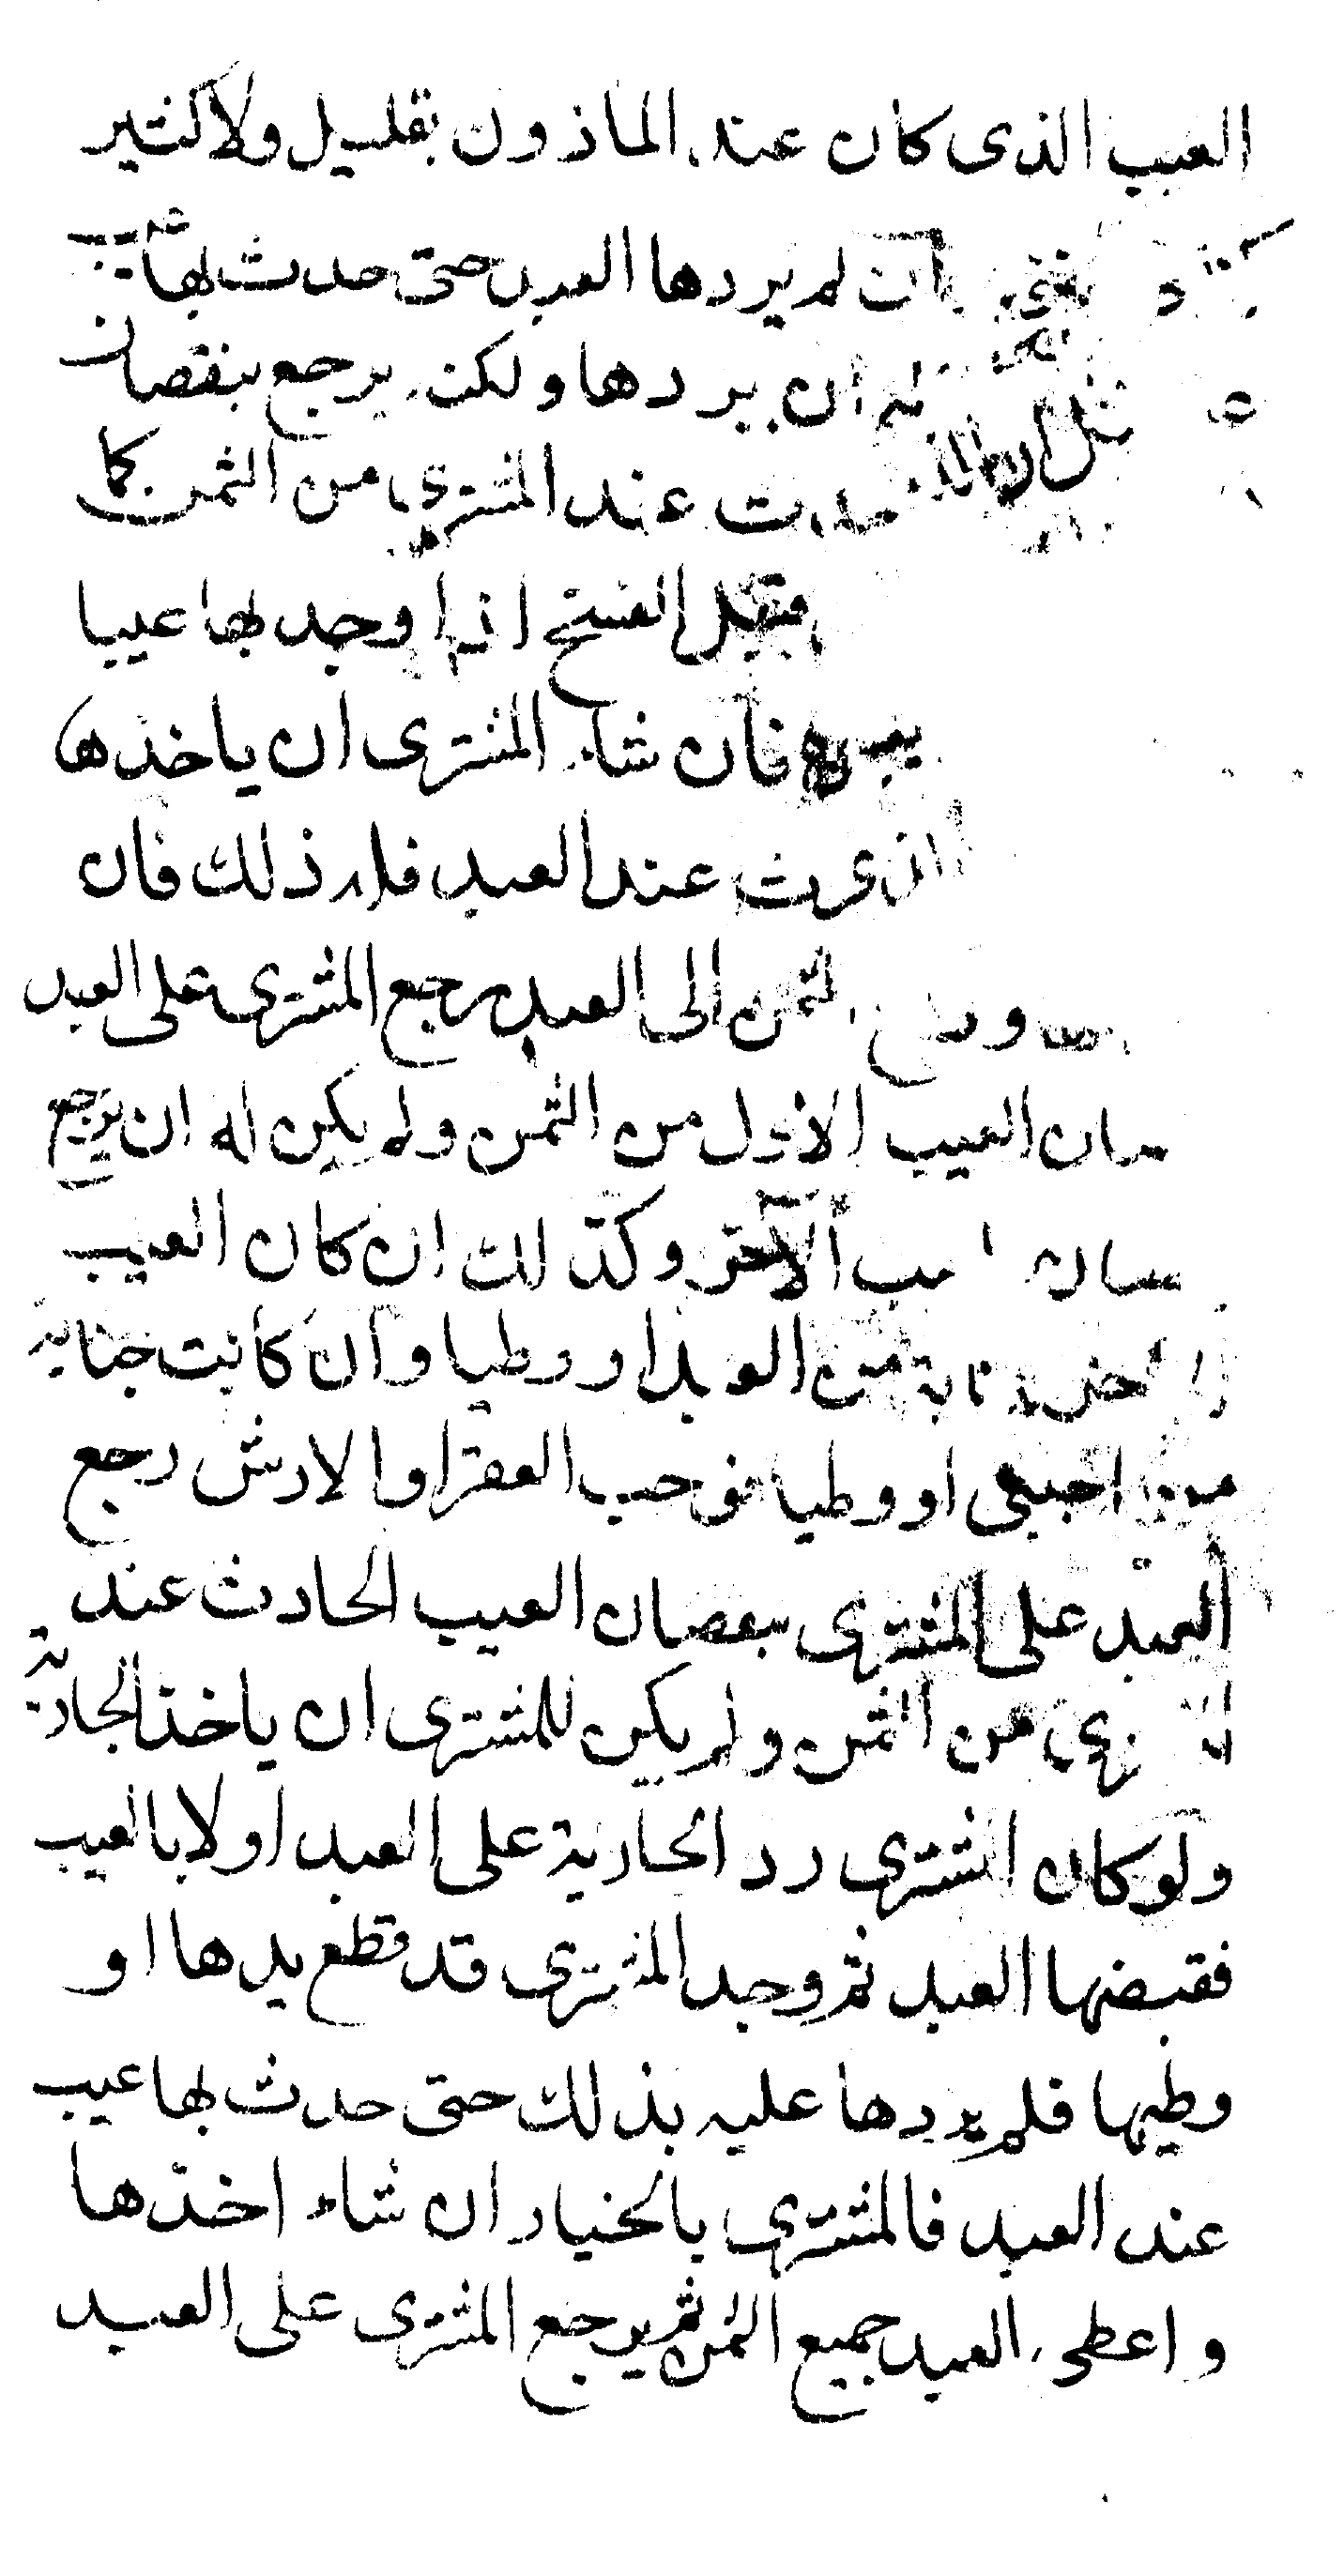 العيب الذي كان عند الماذون بقليل ولا كثير
ان لم يردها العبد حتى حدث بها عيب
له ان يردها ولكن يرجع بنقصان
عند المشتري من الثمن كما
قبل الفسخ اذا وجد بها عيبا
فان شاء المشتري ان ياخذها
عند العبد فله ذلك فان
الثمن الى العبد رجع المشتري على العبد
العيب الاول من الثمن ولم يكن له ان يرجع
الآخر وكذلك ان كان العيب
من العبد او وطيا وان كانت جناية
من اجنبي او وطيا فوجب العقر او الارش رجع
العبد على المشتري بنقصان العيب الحادث عند
المشتري من الثمن ولم يكن للمشتري ان ياخذ الجارية
ولو كان المشتري رد الجارية على العبد اولا بالعيب
فقبضها العبد ثم وجد المشتري قد قطع يدها او
وطيها فلم يردها عليه بذلك حتى حدث بها عيب
عند العبد فالمشتري بالخيار ان شاء اخذها
واعطى العبد جميع الثمن ثم يرجع المشتري على العبد